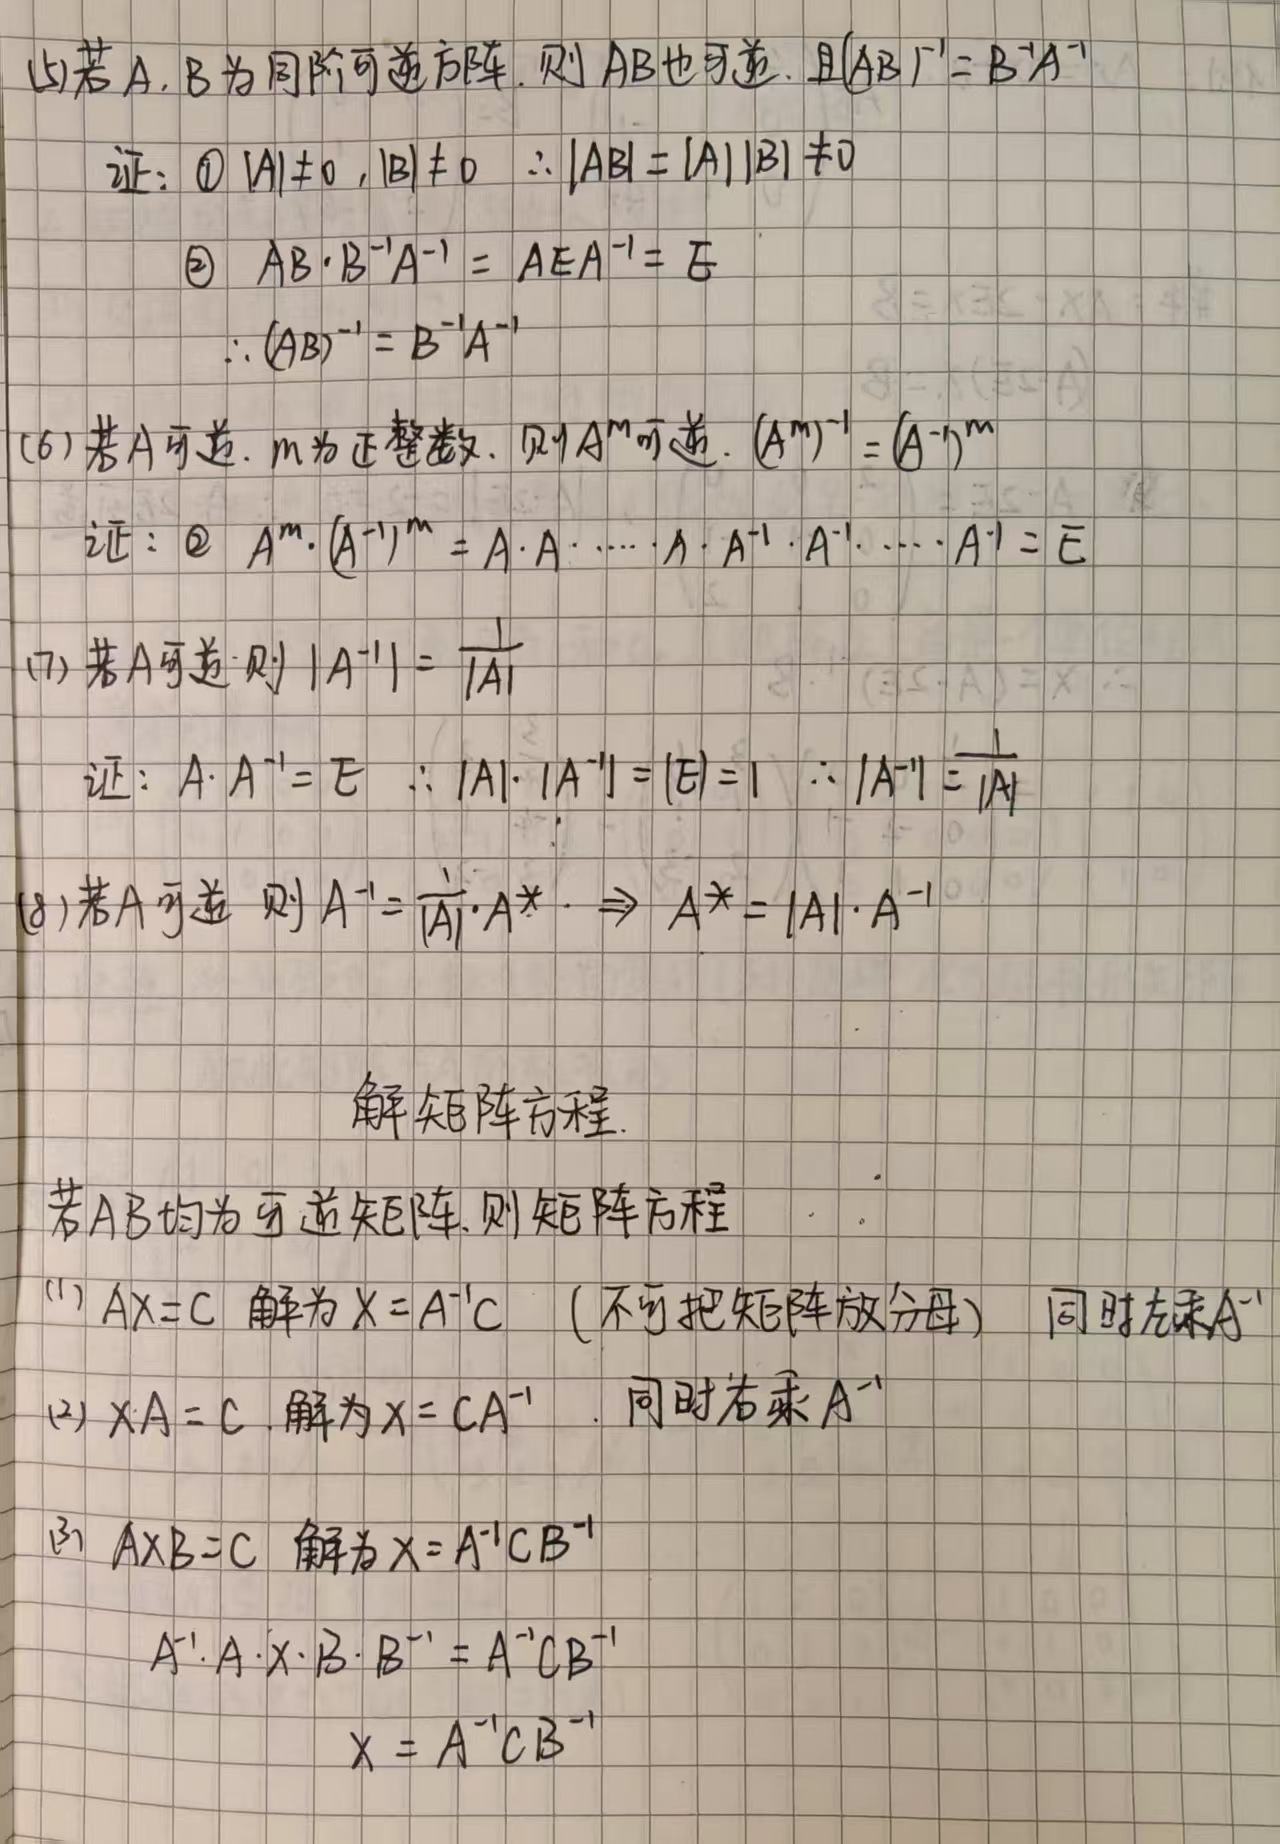 (5)若A.B为同阶可逆方阵.则AB也可逆.且(AB)⁻¹=B⁻¹A⁻¹
证:① |A|≠0,|B|≠0 ∴|AB|=|A||B|≠0
② AB·B⁻¹A⁻¹=AEA⁻¹=E
∴(AB)⁻¹=B⁻¹A⁻¹
(6)若A可逆.m为正整数.则Aᵐ可逆.(Aᵐ)⁻¹=(A⁻¹)ᵐ
证:② Aᵐ·(A⁻¹)ᵐ=A·A·····A·A⁻¹·A⁻¹·····A⁻¹=E
(7)若A可逆.则|A⁻¹|=1/|A|
证:A·A⁻¹=E ∴|A|·|A⁻¹|=|E|=1 ∴|A⁻¹|=1/|A|
(8)若A可逆 则A⁻¹=1/|A|·A* ⇒ A*=|A|·A⁻¹
解矩阵方程.
若AB均为可逆矩阵.则矩阵方程
(1) AX=C 解为X=A⁻¹C (不可把矩阵放分母) 同时左乘A⁻¹
(2) XA=C.解为X=CA⁻¹. 同时右乘A⁻¹
(3) AXB=C 解为X=A⁻¹CB⁻¹
A⁻¹·A·X·B·B⁻¹=A⁻¹CB⁻¹
X=A⁻¹CB⁻¹